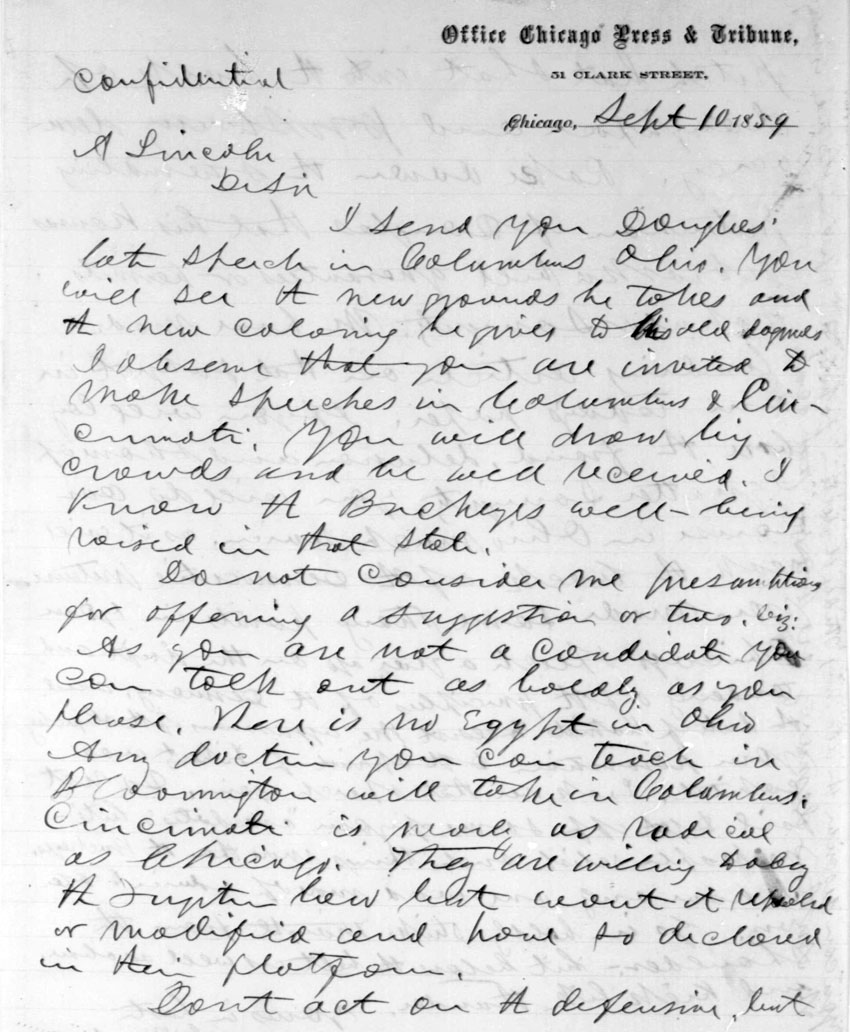 Office Chicago Press & Tribune,
51 CLARK STREET,
Confidential
Chicago, Sept 10 1859
A Lincoln
Dr Sir
I send you Douglas'
late speech in Columbus Ohio. You
will see the new grounds he takes and
the new coloring he gives to his old dogmas
I observe that you are invited to
make speeches in Columbus & Cin-
cinnati. You will draw big
crowds and be well received. I
know the Buckeyes well—being
raised in that state.
Do not consider me presumptious
for offering a suggestion or two. viz:
As you are not a candidate you
can talk out as boldly as you
please. There is no Egypt in Ohio
Any doctrin you can teach in
Bloomington will take in Columbus.
Cincinnati is nearly as radical
as Chicago. They are willing to obey
the Fugitive law but want it repealed
or modified and have so declared
in their platform.
Dont act on the defensive, but